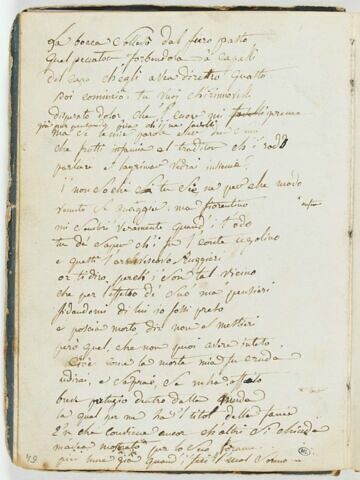 La bocca sollevò dal fiero pasto
quel peccator forbendola a' capelli
del capo ch'egli avea diretro guasto
Poi cominciò tu vuoi ch'io rinovelli
disperato dolor, che 'l cuor mi preme
già pur pensando, pria ch'i' ne favelli
Ma se le mie parole esser
che frutti infamia al traditor ch'i' rodo
parlare e lagrimar vedrai insieme
I' non so chi tu sie ne per che modo
venuto se' quaggiù, ma fiorentino
mi sembri veramente quand' i' t'odo
tu dei saper ch'i' fu' 'l conte ugolino
e questi l'arcivescovo Ruggieri
or ti dirò, perch' i' son tal vicino
che per l'effetto de' suo' ma' pensieri
fidandomi di lui io fossi preso
e poscia morto dir non è mestieri
però quel, che non puoi avere inteso
Cioè come la morte mia fu cruda
udirai, e saprai, se m'ha offeso
breve pertugio dentro dalla muda
la qual per me ha 'l titol della fame
E 'n che conviene ancor ch'altri si chiuda
m'avea mostrato per lo suo forame
più lune già quand' i' feci 'l mal sonno